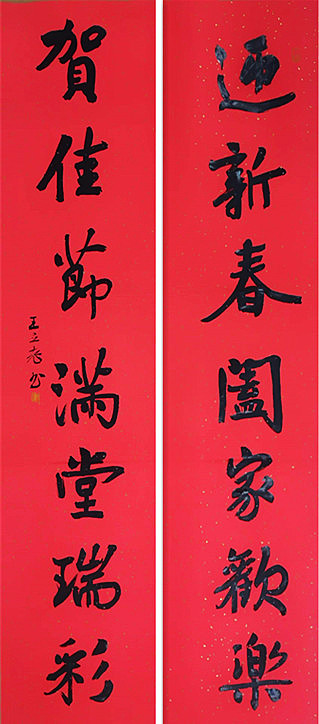 迎新春闔家歡樂
賀佳節滿堂瑞彩
王立志书